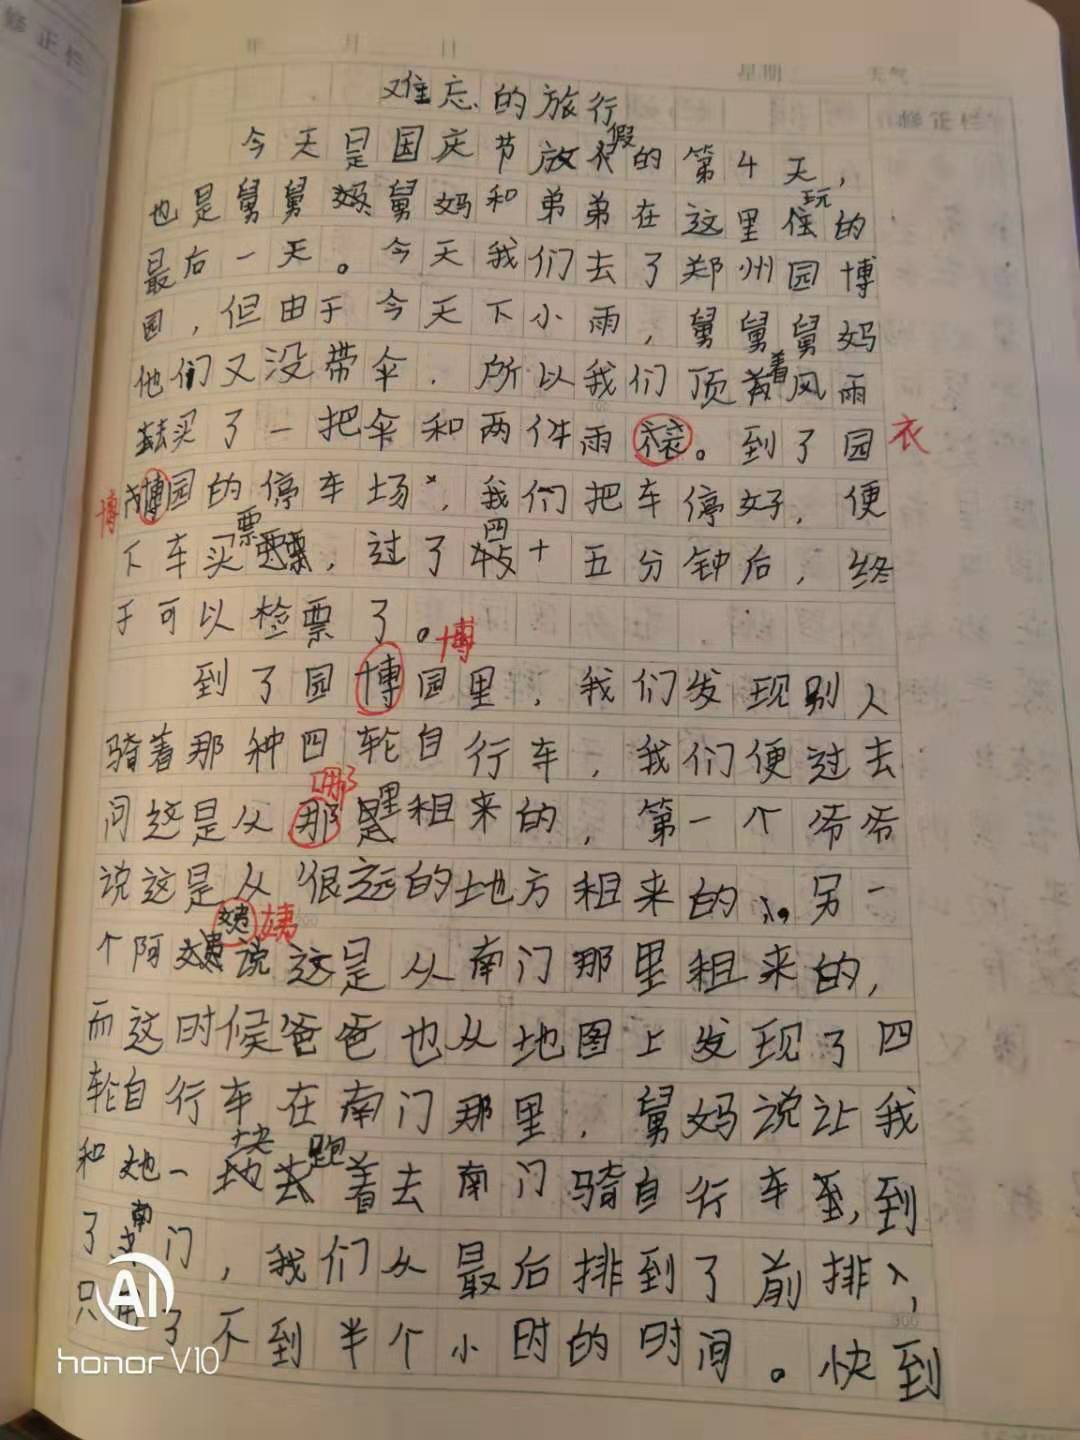 修正栏
年 月 日
星期 天气
修正栏
难忘的旅行
今天是国庆节放假的第4天，
也是舅舅舅妈和弟弟在这里玩的
最后一天。今天我们去了郑州园博
园，但由于今天下小雨，舅舅舅妈
他们又没带伞，所以我们顶着风雨
去买了一把伞和两件雨衣。到了园 衣
博 博园的停车场，我们把车停好，便
下车买票，过了四十五分钟后，终
于可以检票了。
博
到了园博园里，我们发现别人
骑着那种四轮自行车，我们便过去
哪
问这是从那里租来的，第一个爷爷
说这是从很远的地方租来的，另一
姨
个阿姨说这是从南门那里租来的，
而这时候爸爸也从地图上发现了四
轮自行车在南门那里，舅妈说让我
和她一块跑着去南门骑自行车，到
了南门，我们从最后排到了前排，
只用了不到半个小时的时间。快到
300
AI
honor V10